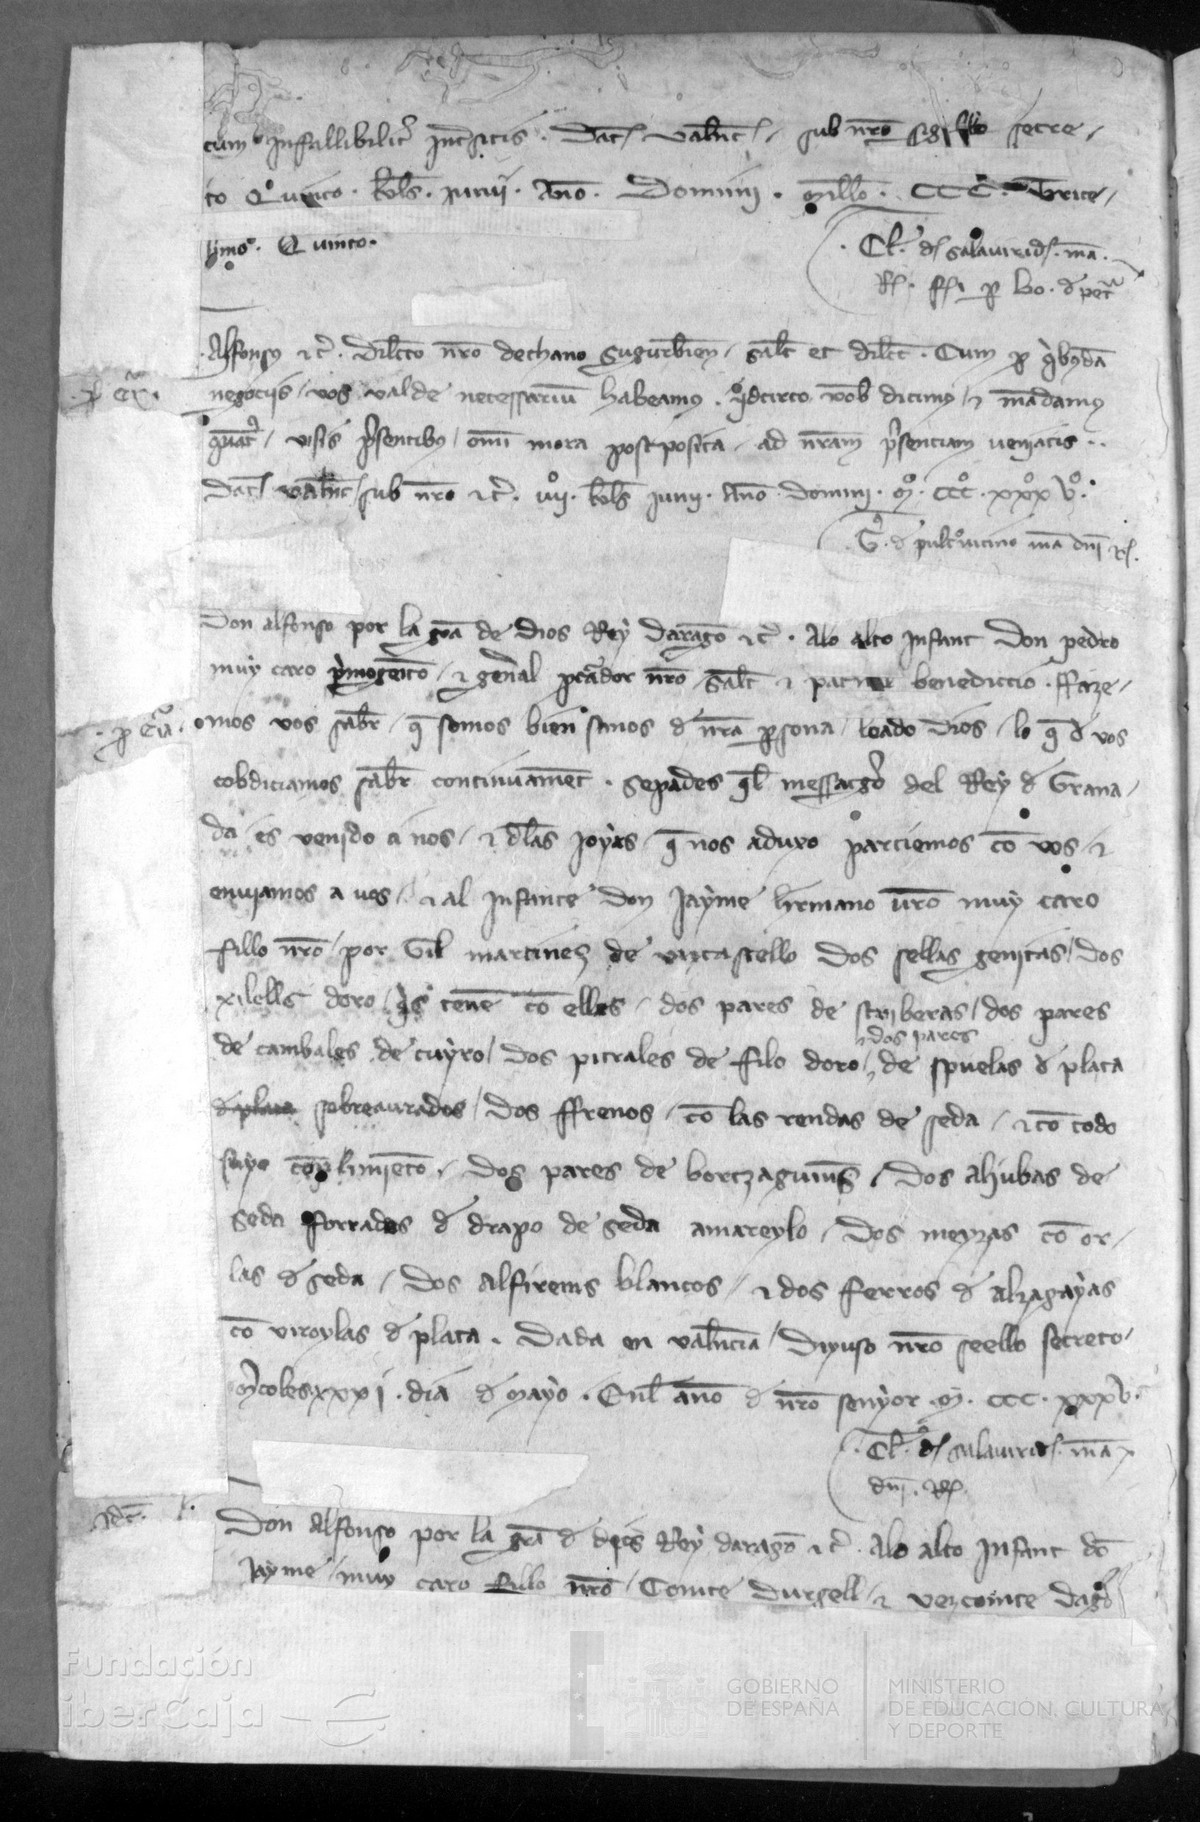 cum infallibilit͛ int͛sitis. Dat͛ val̃nt͛, sub nr̃o sigillo secre-
to Quinto. kl̃s. junii. Año. Domini. mill̃o. CCC. Trice-
simo. Quinto.
Cl̃. d͛ salauirid͛. mã.
R͛.
Alfonsus ⁊c̃. dil̃cto nr̃o dechano Sugurbieñ, sal̃t et dil̃cc̃. Cum p quibusdã
p eã.
negociis, vos valde necessariũ habeamus. idcirco vob̃ dicimus, ⁊ mãdamus
q̃uat͛, visis p̃sentibus, omĩ mora postposita, ad nr̃am p̃senciam veniatis..
Dat͛ val̃nt͛, sub nr̃o ⁊c̃. vii. kl̃s junii. Año domini. mº. CCCº. xxxº vº.
G. d pulcrouicino mã dnĩ R͛.
Don alfonso por la gr̃a de dios Rey daragõ ⁊c̃. Alo alto Infant Don pedro
muy caro p̃mogenito, ⁊ gen̄al pc̃ador nr̃o, sal̃t ⁊ paternal benediccio. ffaze-
p eã.
mos vos sab̃r, q̃ somos bien sanos d nr̃a p̱sona, loado Dios, lo q̃ d vos
cobdiciamos sab̃r continuamẽt. Sepades q̃l messatgero del Rey d Grana-
da es venido a nos, ⁊ dlas joyas, q̃ nos aduxo partiemos cõ vos, ⁊
enviamos a vos, ⁊ al Infante Don Jayme hermano vr̃o muy caro
fillo nr̃o, por Gil martineȝ de vntastello dos sellas genitas, dos
xilells doro, q̃s tenẽ cõ elles, dos pares de striberas, dos pares
⁊ dos pares
de cambales de cuyro, dos pitrales de filo doro, de spuelas d plata
d plata sobreaurados, dos ffrenos, cõ las rendas de seda, ⁊ cõ todo
suyo cõplimiẽto, Dos pares de bortzaguins, dos aliubas de
seda forrades d drapo de seda amareylo, dos meyzas cõ or-
las d seda, dos alfirems blancos, ⁊ dos ferros d alzagayas
cõ viroylas d plata. Dada en val̃ncia, diyuso nr̃o seello secreto,
m̃coles xxxi. dia d mayo. Enl año d nr̃o senyor. m. CCC. xxxv.
Cl̃. d͛ salauirid͛. mã
dnĩ. R͛.
idẽ.
Don Alfonso por la gr̃a d dios Rey daragõ ⁊c̃. Alo alto Infant dõ
Jayme, muy caro fillo nr̃o, Comte durgell, ⁊ vezcomte dag̃
Fundación
iberCaja
GOBIERNO
DE ESPAÑA
MINISTERIO
DE EDUCACIÓN, CULTURA
Y DEPORTE